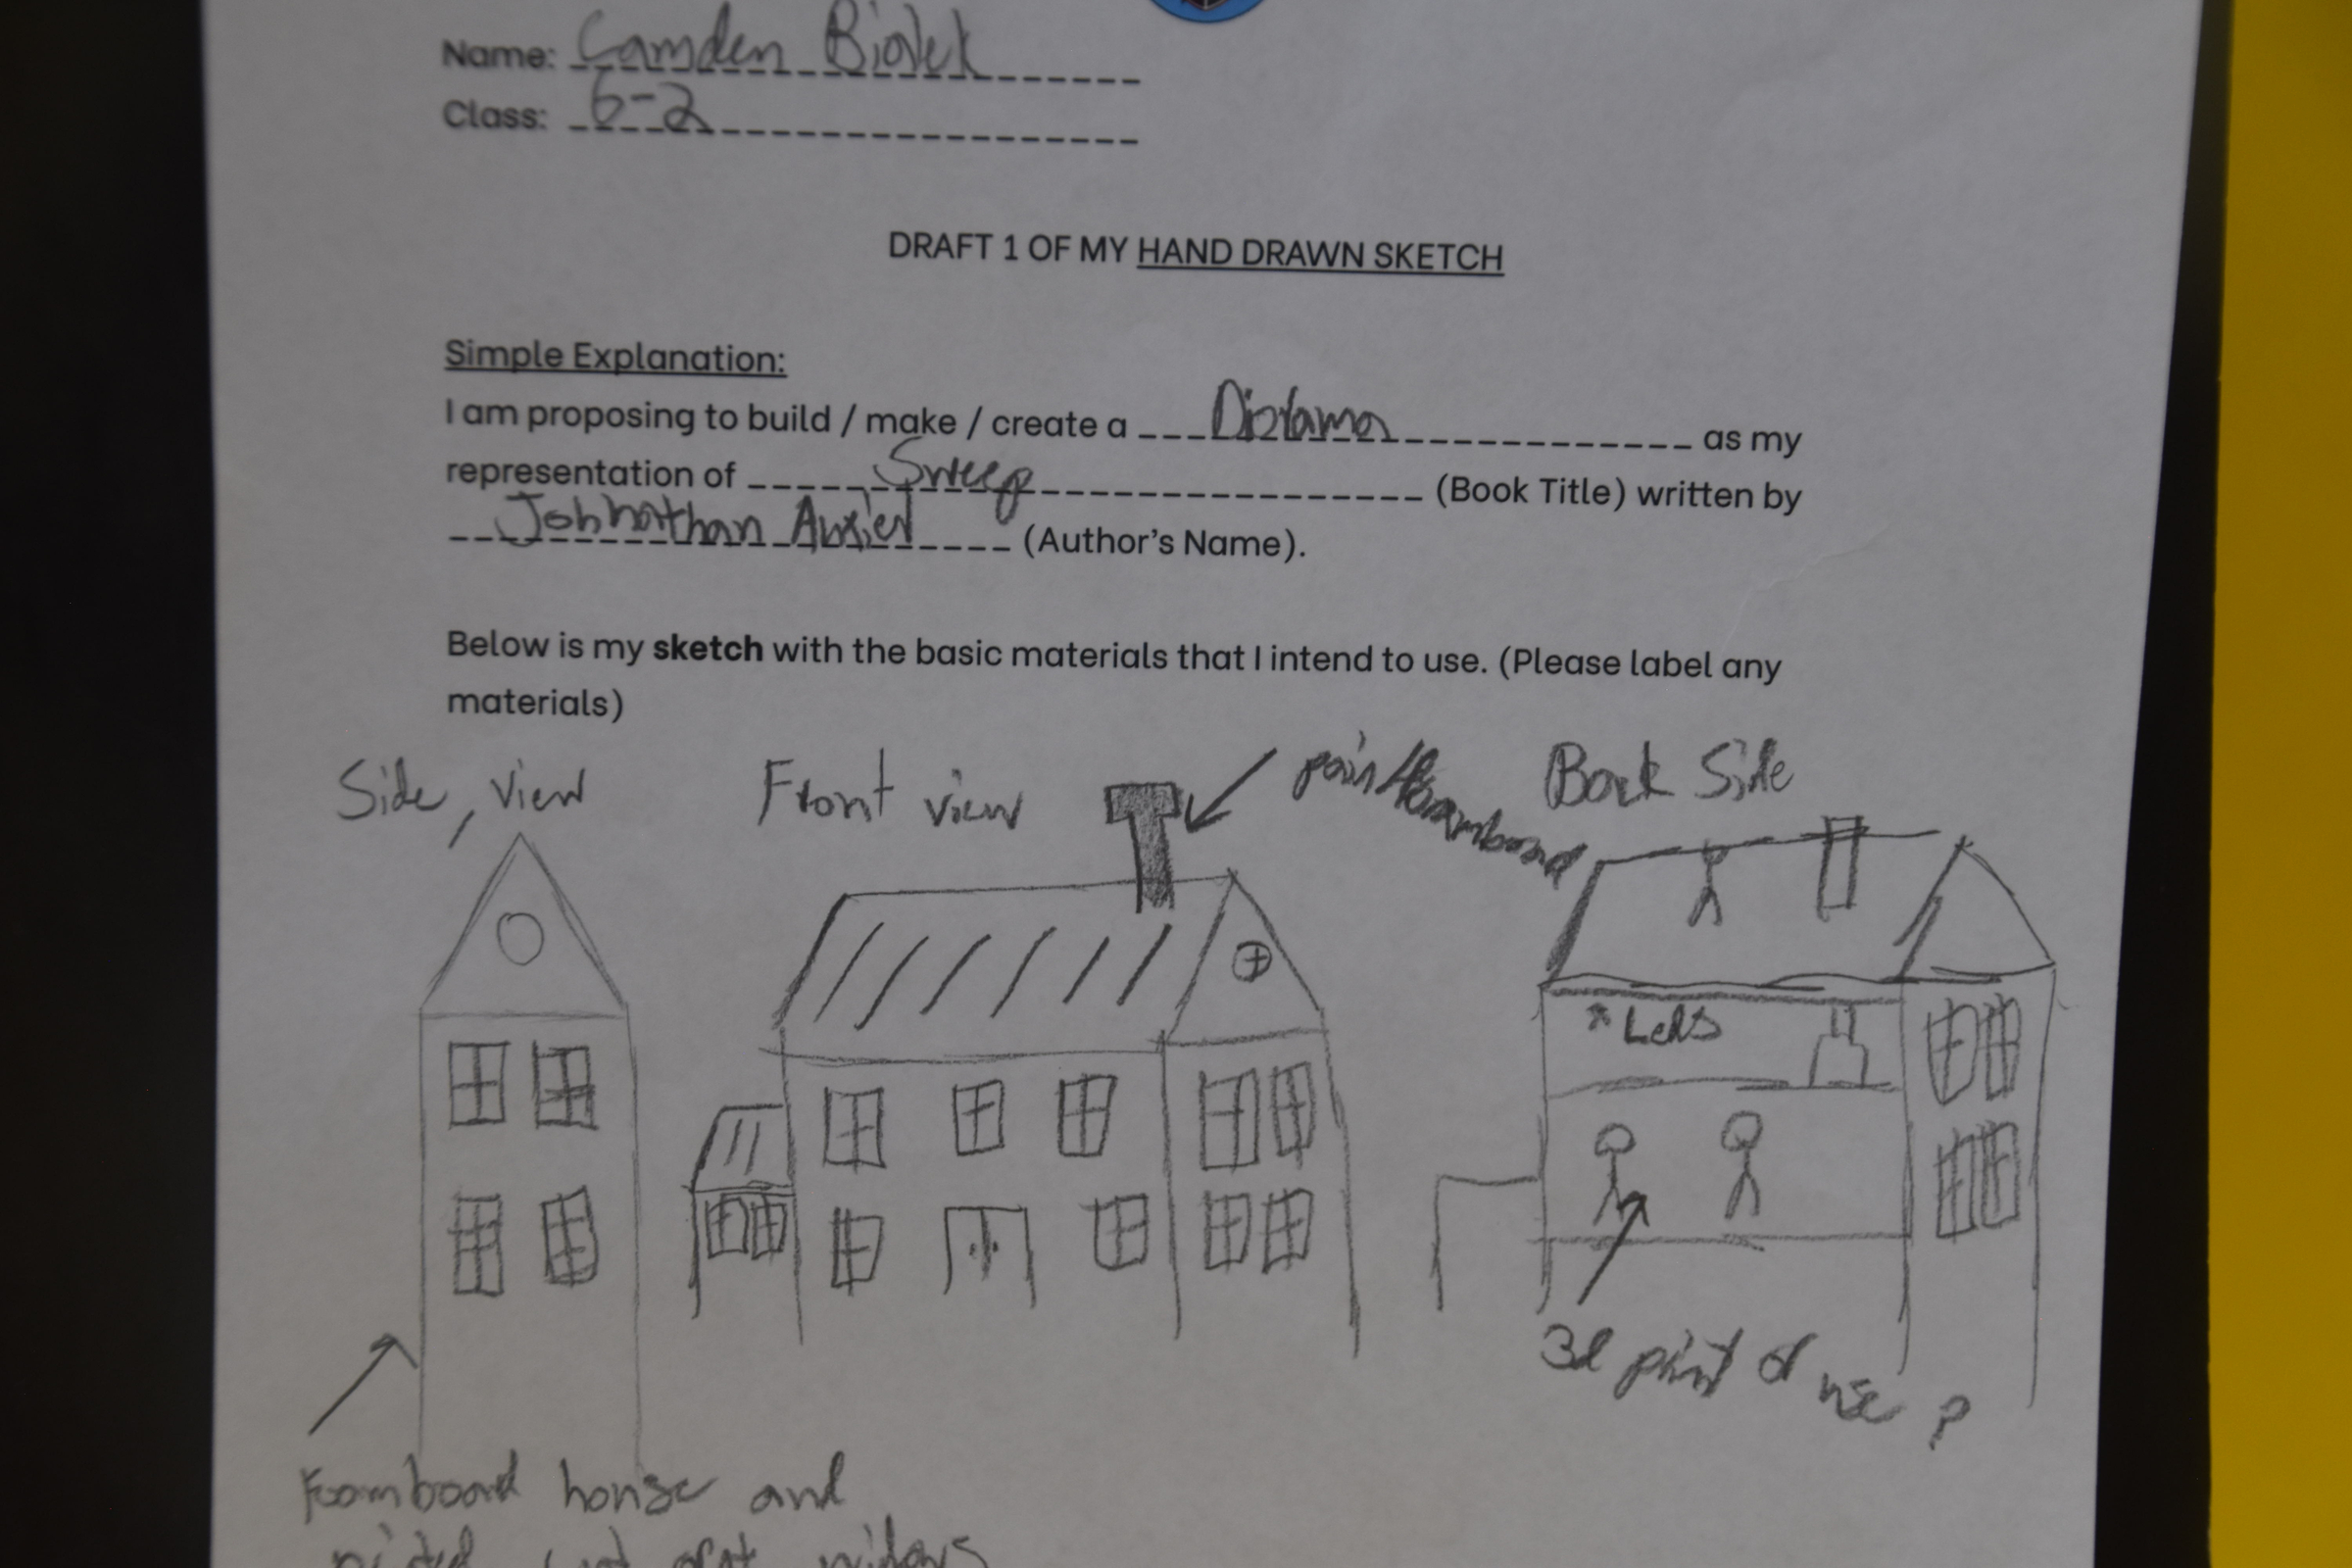 Name: Camden
Class: 6-2
DRAFT 1 OF MY HAND DRAWN SKETCH
Simple Explanation:
I am proposing to build / make / create a Diorama as my
representation of Sweep (Book Title) written by
Johnathan Auxier (Author's Name).
Below is my sketch with the basic materials that I intend to use. (Please label any
materials)
Side view
Front view
foamboard
Back Side
Leds
3d print or use
Foamboard house and
cut out windows